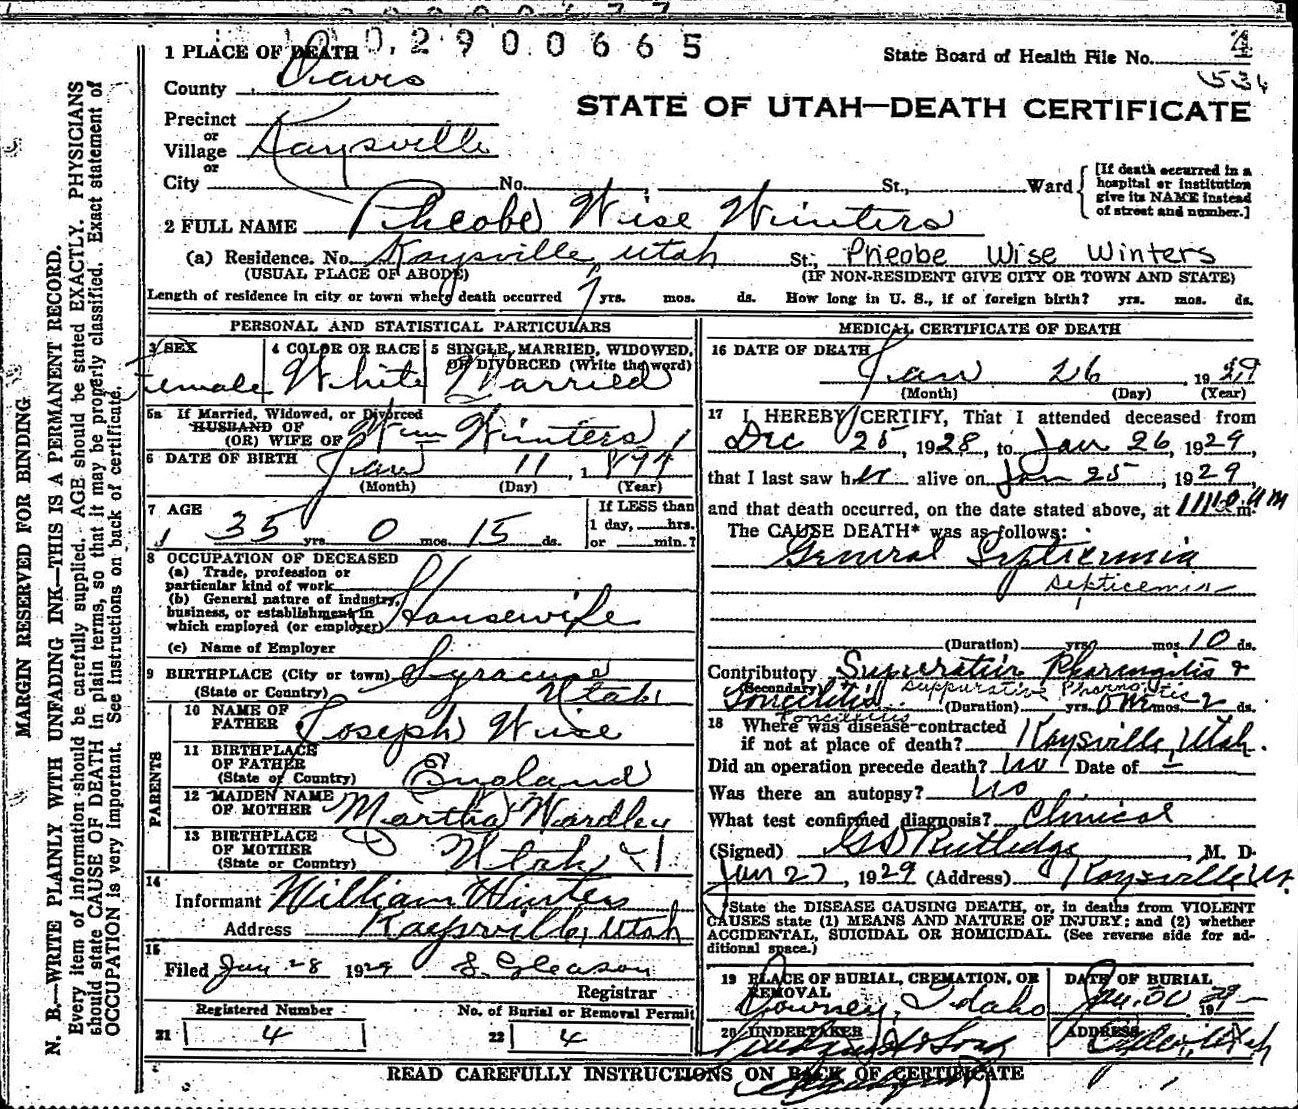 0 0 2 9 0 0 6 6 5
1 PLACE OF DEATH
State Board of Health File No. 4
534
County Davis
STATE OF UTAH—DEATH CERTIFICATE
Precinct
or
Village Kaysville
or
City No. St., Ward
[If death occurred in a
hospital or institution
give its NAME instead
of street and number.]
2 FULL NAME Pheobe Wise Winters
(a) Residence. No. Kaysville, Utah St., Pheobe Wise Winters
(USUAL PLACE OF ABODE) (IF NON-RESIDENT GIVE CITY OR TOWN AND STATE)
Length of residence in city or town where death occurred 7 yrs. mos. ds. How long in U. S., if of foreign birth? yrs. mos. ds.
PERSONAL AND STATISTICAL PARTICULARS
3 SEX
Female
4 COLOR OR RACE
White
5 SINGLE, MARRIED, WIDOWED,
OR DIVORCED (Write the word)
Married
5a If Married, Widowed, or Divorced
HUSBAND OF
(OR) WIFE OF Wm Winters
6 DATE OF BIRTH Jan 11, 1894
(Month) (Day) (Year)
7 AGE
35 yrs. 0 mos. 15 ds.
If LESS than
1 day, hrs.
or min.?
8 OCCUPATION OF DECEASED
(a) Trade, profession or
particular kind of work
(b) General nature of industry,
business, or establishment in
which employed (or employer) Housewife
(c) Name of Employer
9 BIRTHPLACE (City or town) Syracuse
(State or Country) Utah
PARENTS
10 NAME OF
FATHER Joseph Wise
11 BIRTHPLACE
OF FATHER
(State or Country) England
12 MAIDEN NAME
OF MOTHER Martha Wardley
13 BIRTHPLACE
OF MOTHER
(State or Country) Utah
14
Informant William Winters
Address Kaysville, Utah
15
Filed Jan 28 1929 S. Gleason
Registrar
Registered Number
21 4
No. of Burial or Removal Permit
22 4
MEDICAL CERTIFICATE OF DEATH
16 DATE OF DEATH
Jan 26 1929
(Month) (Day) (Year)
17 I HEREBY CERTIFY, That I attended deceased from
Dec 25, 1928, to Jan 26, 1929,
that I last saw her alive on Jan 25, 1929,
and that death occurred, on the date stated above, at m.
The CAUSE DEATH* was as follows:
General Septicemia
Septicemia
(Duration) yrs. mos. 10 ds.
Contributory Supurative Pharengitis &
(Secondary) Toncilitis Suppurative Pharngitic
(Duration) yrs. one mos. 2 ds.
Toncilitis
18 Where was disease contracted
if not at place of death? Kaysville, Utah.
Did an operation precede death? no Date of —
Was there an autopsy? No
What test confirmed diagnosis? Clinical
(Signed) G D Rutledge, M. D.
Jan 27, 1929 (Address) Kaysville, Ut.
*State the DISEASE CAUSING DEATH, or, in deaths from VIOLENT
CAUSES state (1) MEANS AND NATURE OF INJURY; and (2) whether
ACCIDENTAL, SUICIDAL OR HOMICIDAL. (See reverse side for ad-
ditional space.)
19 PLACE OF BURIAL, CREMATION, OR
REMOVAL
Downey, Idaho
DATE OF BURIAL
Jan. 30 1929
20 UNDERTAKER
& Sons
ADDRESS
Ogden, Utah
READ CAREFULLY INSTRUCTIONS ON BACK OF CERTIFICATE
MARGIN RESERVED FOR BINDING
N. B.—WRITE PLAINLY WITH UNFADING INK—THIS IS A PERMANENT RECORD.
Every item of information should be carefully supplied. AGE should be stated EXACTLY. PHYSICIANS
should state CAUSE OF DEATH in plain terms, so that it may be properly classified. Exact statement of
OCCUPATION is very important. See instructions on back of certificate.